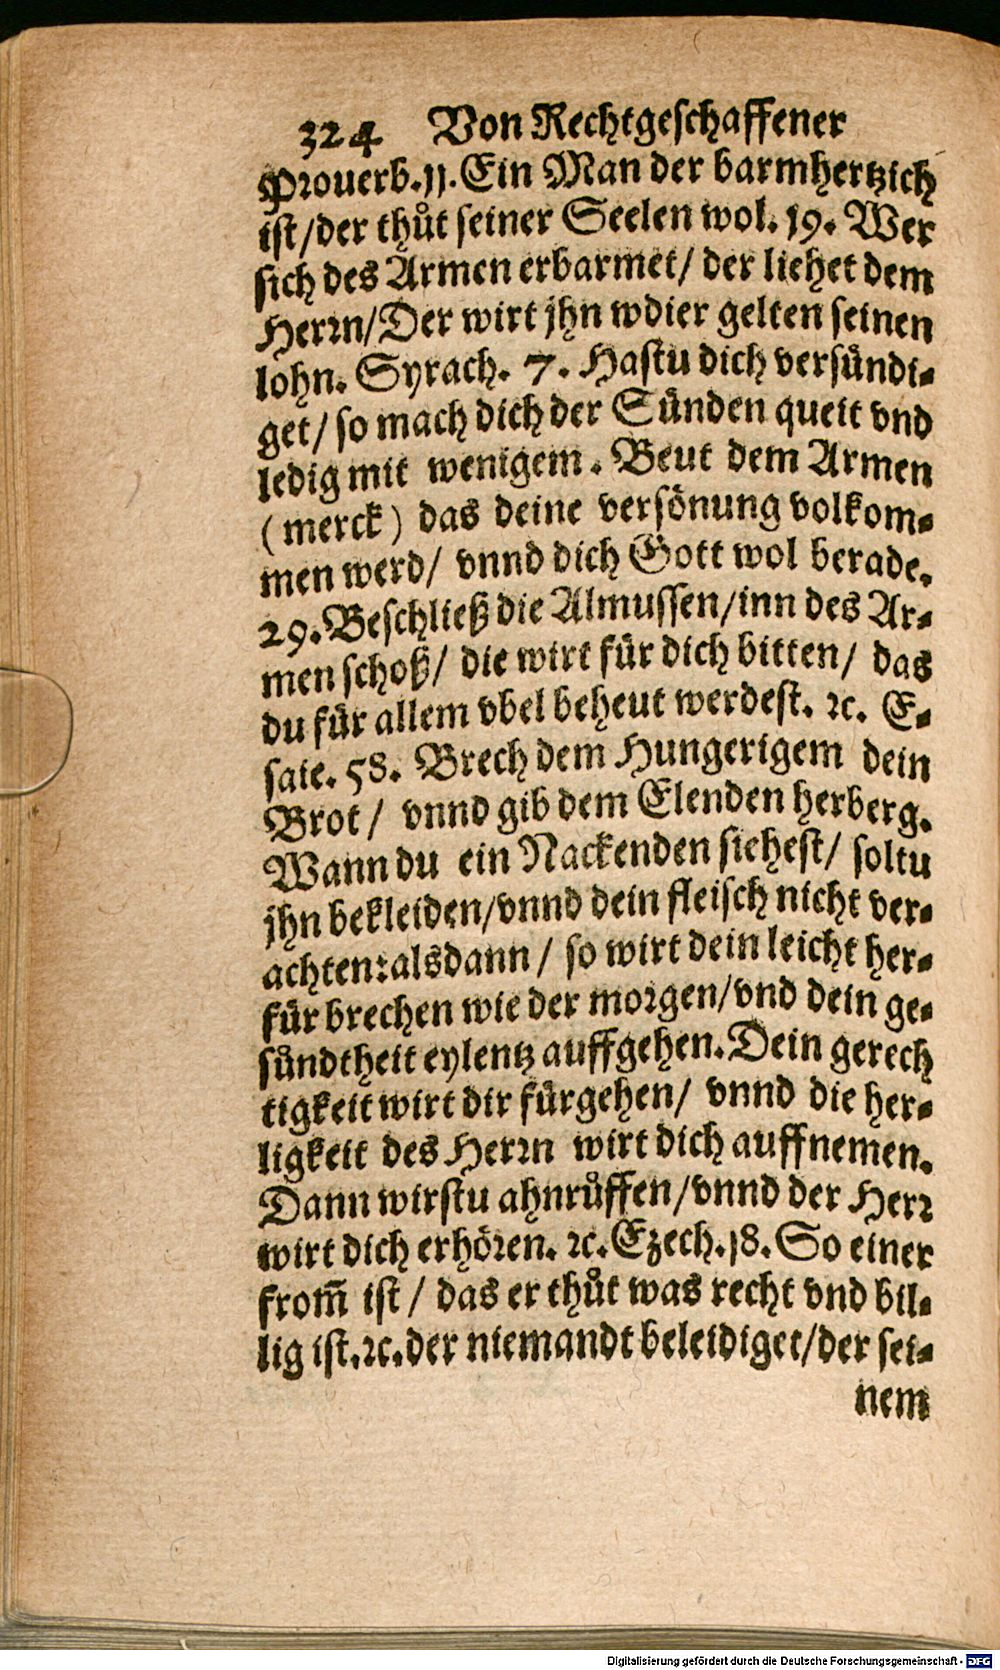 324 Von Rechtgeschaffener
Prouerb.11. Ein Man der barmhertzich
ist/der thůt seiner Seelen wol. 19. Wer
sich des Armen erbarmet/ der liehet dem
Herrn/Der wirt jhn wdier gelten seinen
lohn. Syrach. 7. Hastu dich versündi-
get/ so mach dich der Sünden queit vnd
ledig mit wenigem. Beut dem Armen
(merck) das deine versönung volkom-
men werd/ vnnd dich Gott wol berade.
29. Beschließ die Almussen/inn des Ar-
men schoß/ die wirt für dich bitten/ das
du für allem vbel beheut werdest. ꝛc. E-
saie. 58. Brech dem Hungerigem dein
Brot/ vnnd gib dem Elenden herberg.
Wann du ein Nackenden siehest/ soltu
jhn bekleiden/vnnd dein fleisch nicht ver-
achten:alsdann/ so wirt dein leicht her-
für brechen wie der morgen/vnd dein ge-
sůndtheit eylentz auffgehen. Dein gerech
tigkeit wirt dir fürgehen/ vnnd die her-
ligkeit des Herrn wirt dich auffnemen.
Dann wirstu ahnrůffen/vnnd der Herr
wirt dich erhören. ꝛc. Ezech.18. So einer
from̄ ist/ das er thůt was recht vnd bil-
lig ist.ꝛc.der niemandt beleidiget/der sei-
nem
Digitalisierung gefördert durch die Deutsche Forschungsgemeinschaft - DFG